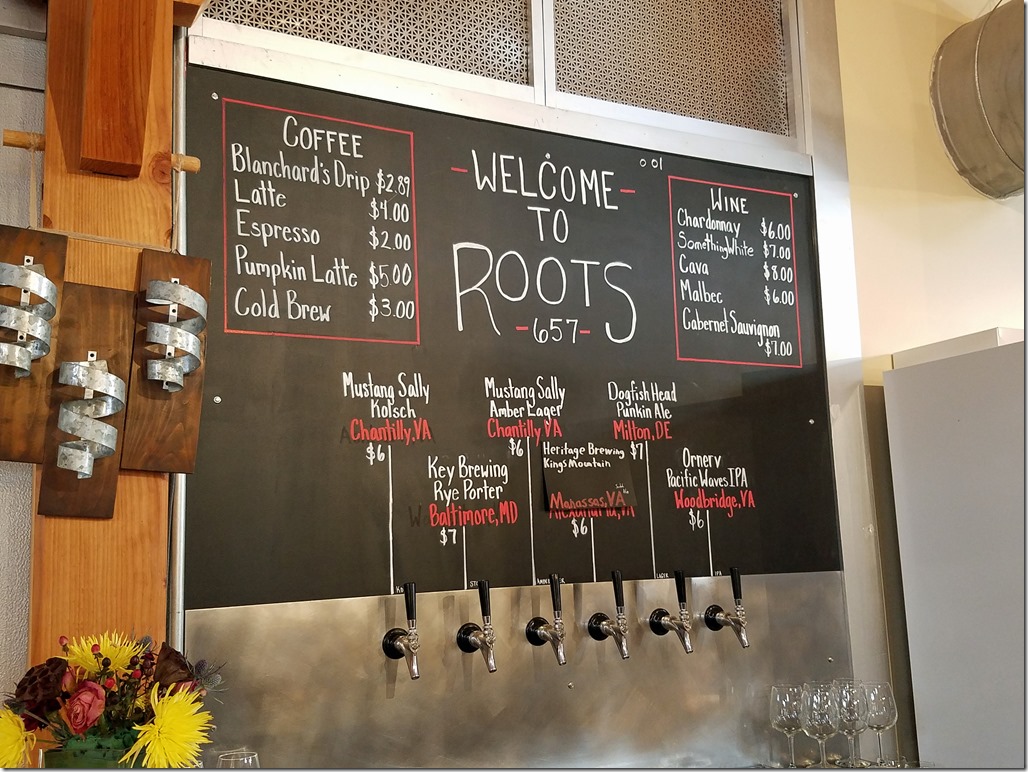 COFFEE
Blanchard's Drip $2.89
Latte $4.00
Espresso $2.00
Pumpkin Latte $5.00
Cold Brew $3.00
-WELCOME-
TO
ROOTS
-657-
WINE
Chardonnay $6.00
Something White $7.00
Cava $8.00
Malbec $6.00
Cabernet Sauvignon
$7.00
Mustang Sally
Kolsch
Chantilly, VA
$6
Mustang Sally
Amber Lager
Chantilly VA
$6
Dogfish Head
Punkin Ale
Milton, DE
$7
Key Brewing
Rye Porter
Baltimore, MD
$7
Heritage Brewing
Kings Mountain
Manassas, VA
Alexandria, VA
$6
Ornery
Pacific Waves IPA
Woodbridge, VA
$6
LAGER
IPA